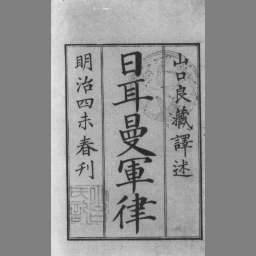 山口良藏譯述
日耳曼軍律
明治四未春刋